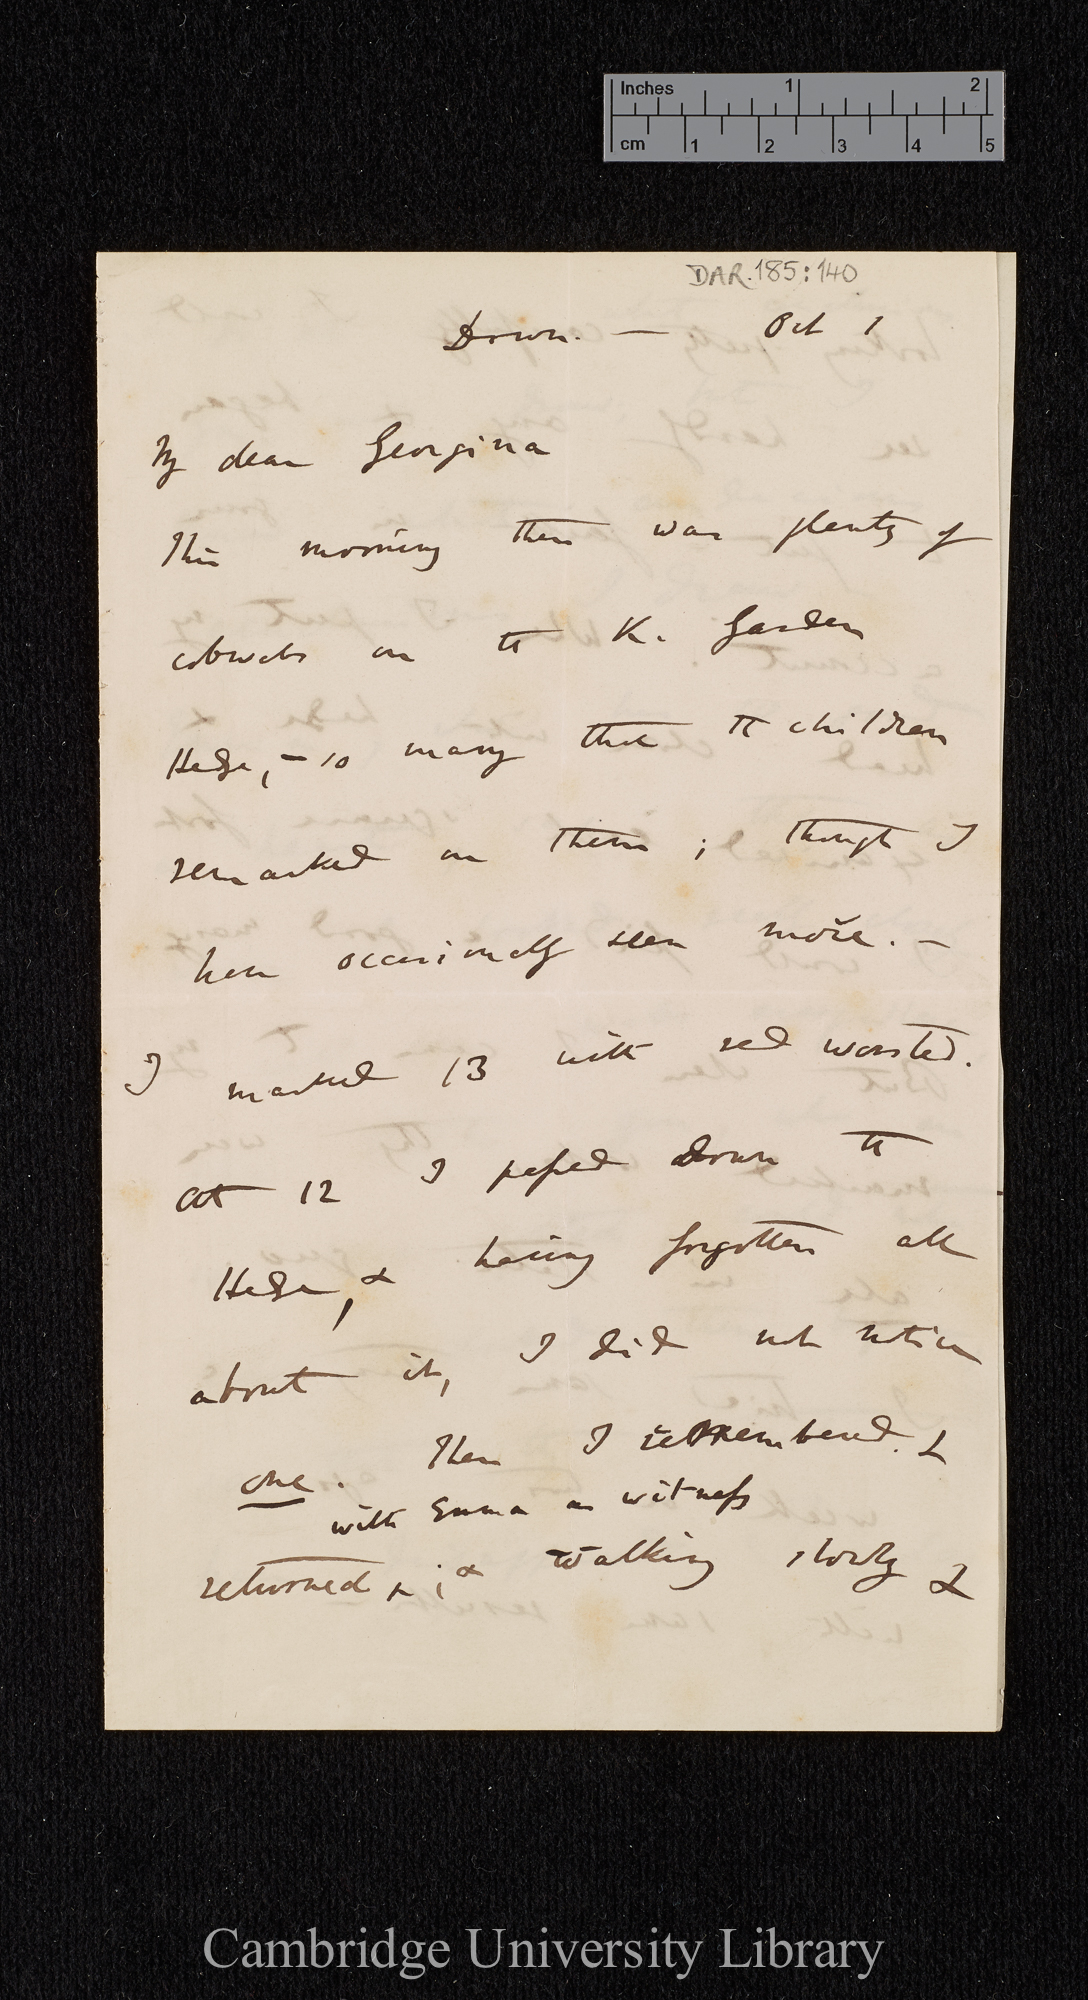 Inches 1 2
cm 1 2 3 4 5
DAR.185:140
Down. — Oct 1
My dear Georgina
This morning there was plenty of
cobwebs on the K. Garden
Hedge, — so many that the children
remarked on them ; though I
have occasionally seen more. —
I marked 13 with red worsted.
At 12 I passed down the
Hedge, & having forgotten all
about it, I did not notice
one. Then I remembered &
with Emma as witness
returned, ; & walking slowly &
Cambridge University Library